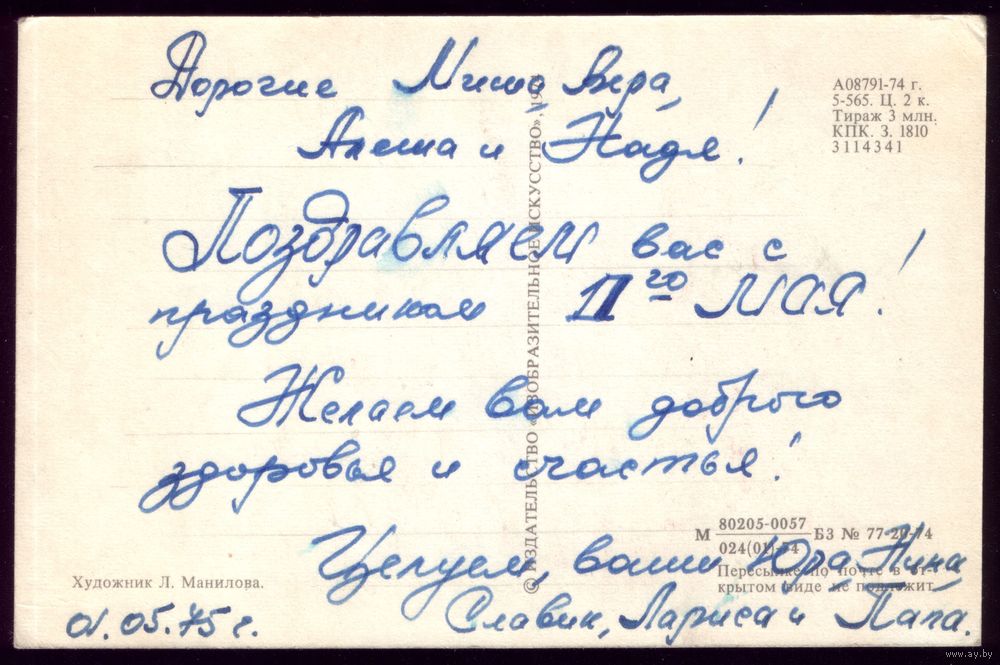 Дорогие Миша, Вера,
Алеша и Надя!
Поздравляем вас с
праздником 1го МАЯ!
Желаем вам доброго
здоровья и счастья!
Целуем, ваши Юра, Нина,
Славик, Лариса и Папа.
01.05.75 г.
А08791-74 г.
5-565. Ц. 2 к.
Тираж 3 млн.
КПК. З. 1810
3114341
© ИЗДАТЕЛЬСТВО «ИЗОБРАЗИТЕЛЬНОЕ ИСКУССТВО»,
М 80205-0057
024(01)-74 БЗ № 77-20-74
Пересылке по почте в от-
крытом виде не подлежит
Художник Л. Манилова.
www.ay.by